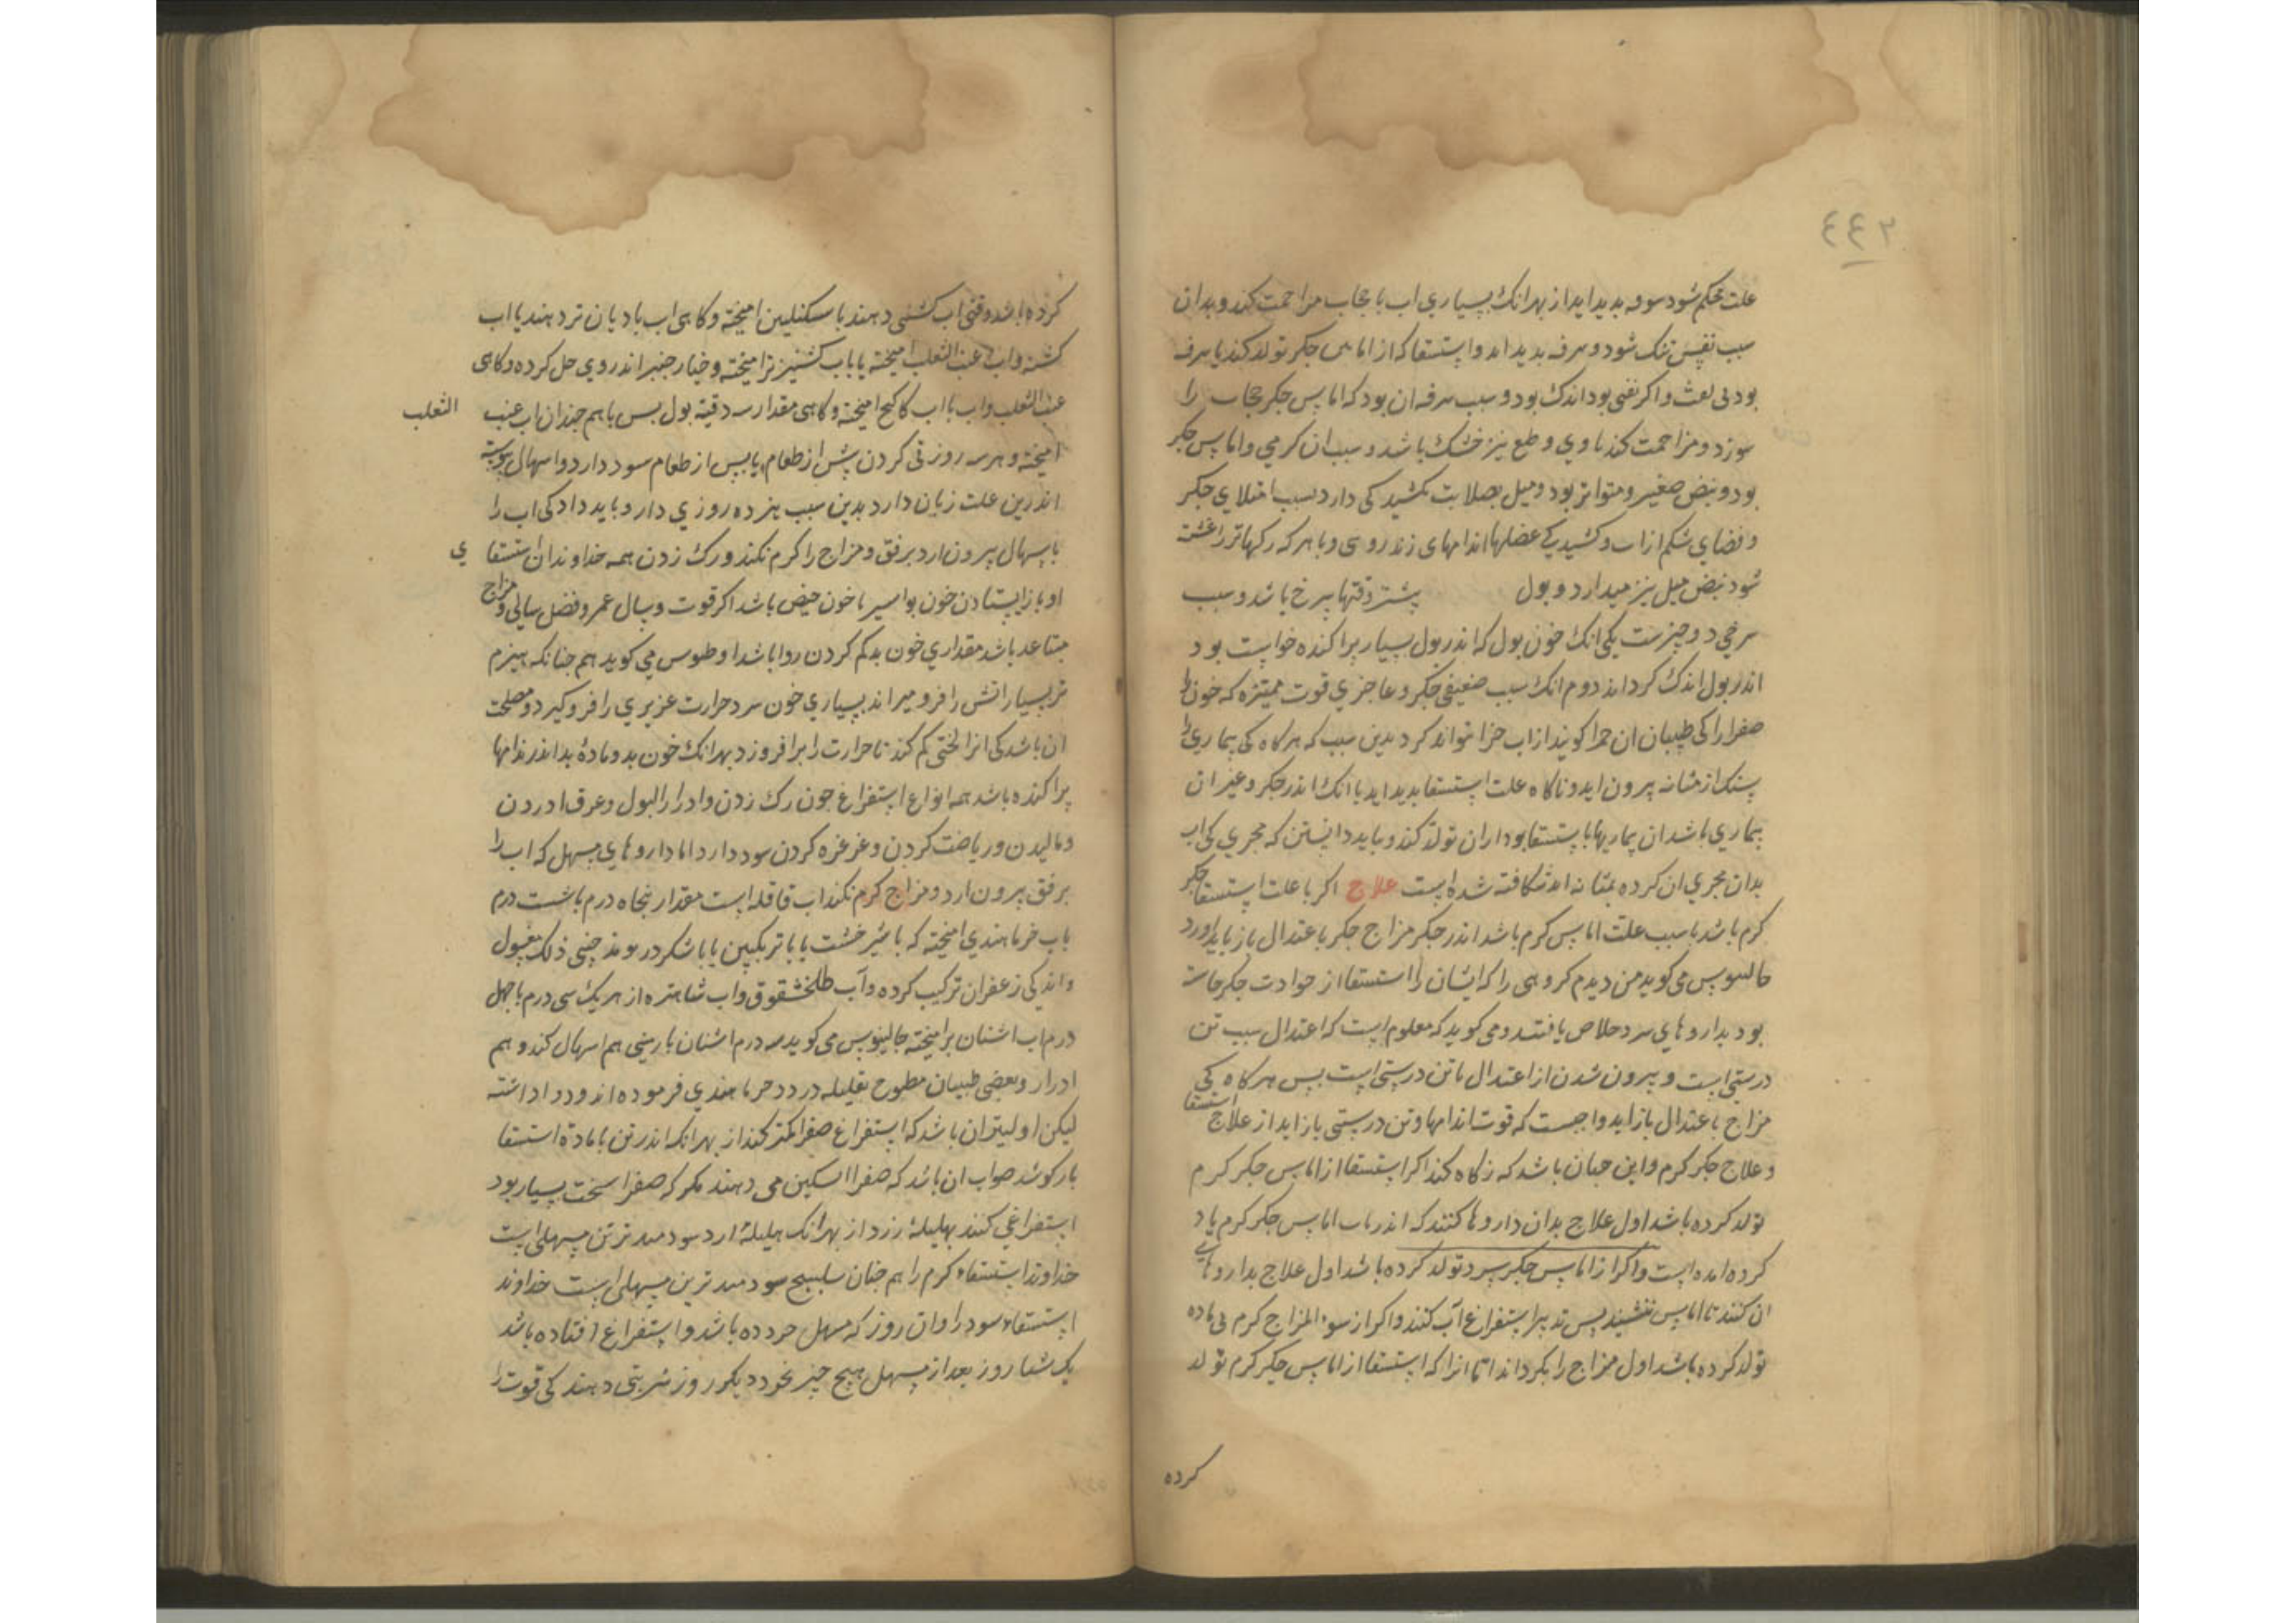 ٤٤٣
علت محکم شود سرفه بدید اید از بهر انک بسیاری اب با حجاب مزاحمت کند و بدان
سبب نفس تنک شود و سرفه بدید اید و استسقا که از اماس جکر تولد کند با سرفه
بود بی نفث و اکر نفثی بود اندک بود و سبب سرفه ان بود که اماس جکر حجاب را
سوزد و مزاحمت کند با وی و طبع نیز خشک باشد و سبب ان کرمی و اماس جکر
بود و نبض صغیر و متواتر بود و میل بصلابت کشیدکی دارد بسبب امتلای جکر
و فضای شکم از اب و کشیدیکی عضلها اندامهای و با هر که رکها تر اغشته
شود نبض میل بنرمی دارد و بول بیشتر وقتها سرخ باشد و سبب
سرخی دو چیزست یکی انک خون بول که اندر بول بسیار براکنده خواست بود
اندر بول اندک کرد اند دوم انک سبب ضعیفی جکر و عاجزی قوت ممیزه که خون را
صفرا را کی طبیبان ان حمرا کویند از اب جزا نتواند کرد بدین سبب که هرکاه کی بیماری را
سنک از مثانه بیرون اید و ناکاه علت استسقا بدید اید یا انک اندر جکر و غیر ان
بیماری باشد ان بیماریها با استسقا بود ازان تولد کند و باید دانستن که مجری کی اب
بدان مجری ان کرده بمثانه اند شکافته شده است علاج اکر با علت استسقا جکر
کرم باشد یا سبب علت اماس کرم باشد اندر جکر مزاج جکر با عتدال باز باید اورد
جالینوس می کوید من دیدم کروهی را که ایشان را استسقا از حوادت جکر خاسته
بود بداروهای سرد خلاص یافتند و می کوید که معلوم است که اعتدال سبب تن
درستی است و بیرون شدن از اعتدال نا تن درستی است بس هرکاه کی
مزاج با عتدال باز اید واجبست که قوت اندامها و تن درستی باز اید از علاج استسقا
و علاج جکر کرم و این جنان باشد که نکاه کند اکر استسقا از اماس جکر کرم
تولد کرده باشد اول علاج بدان داروها کنند که اندر باب اماس جکر کرم یاد
کرده امده است و اکر از اماس جکر سرد تولد کرده باشد اول علاج بداروهای
ان کنند تا اماس بنشیند بس تدبیر استفراغ آب کنند و اکر از سوء المزاج کرم بی ماده
تولد کرده باشد اول مزاج را بکرداند اما انرا که استسقا از اماس جکر کرم تولد
کرده
کرده باشد وقتی اب کشنی دهند با سکنکبین امیخته و کاهی اب بادیان تر دهند با اب
کشنه و اب عنب الثعلب امیخته یا باب کشنیز تر امیخته و خیار جنبر اندر وی حل کرده و کاهی
عنب الثعلب و اب با اب کاکنج امیخته و کاهی مقدار سه دقیه بول بس با هم جندان اب عنب الثعلب
امیخته و هر سه روز قی کردن بیش از طعام یا بس از طعام سود دارد و اسهال بیوسته
اندرین علت زیان دارد بدین سبب هر ده روزی دارو باید داد کی اب را
باسهال بیرون ارد برفق و مزاج را کرم نکند و رک زدن همه خداوندان استسقا ی
او باز ایستادن خون بواسیر یا خون حیض باشد اکر قوت و سال عمر و فصل سالی و مزاج
مساعد باشد مقداری خون بد کم کردن روا باشد اوطوس می کوید هم جنانکه هیزم
تر بسیار اتش را فرو میراند بسیاری خون سرد حرارت غریزی را فرو کیرد و مصلحت
ان باشد کی انرا لختی کم کند تا حرارت را برافروزد بهر انک خون بد و مادهٔ بد اندر اندامها
براکنده باشد همه انواع استفراغ جون رک زدن و ادرار البول و عرق اوردن
و مالیدن و ریاضت کردن و غرغره کردن سود دارد اما داروهای مسهل که اب را
برفق بیرون ارد و مزاج کرم نکند اب قاقله است مقدار بنجاه درم یا شست درم
باب خرما هندی امیخته که با شیر خشت یا با ترنکبین یا با شکر در بوند جینی ذلک مغسول
و اندکی زعفران ترکیب کرده و آب طلخشقوق و اب شاهتره از هر یک سی درم یا جهل
درم اب اشنان برامیخته جالینوس می کوید سه درم اشنان بارسی هم اسهال کند و هم
ادرار و بعضی طبیبان مطبوخ بهلیله زرد و خرما هندی فرموده اند و روا داشته
لیکن اولیتر ان باشد که استفراغ صفرا کمتر کنند از بهر انک اندر تن با مادة استسقا
بازکوشد صواب ان باشد که صفرا را تسکین می دهند مکر که صفرا سخت بسیار بود
استفراغی کنند بهلیلهٔ زرد از بهر انک هلیله ارد سودمند ترین مسهلی است
خداوند استسقاء کرم را هم جنان سودمند ترین مسهلی است خداوند
استسقاء سرد را وان روز که مسهل خورده باشد و استفراغ افتاده باشد
یک شبا روز بعد از مسهل هیج جیز نخورد دیکر روز شربتی دهند کی قوت را